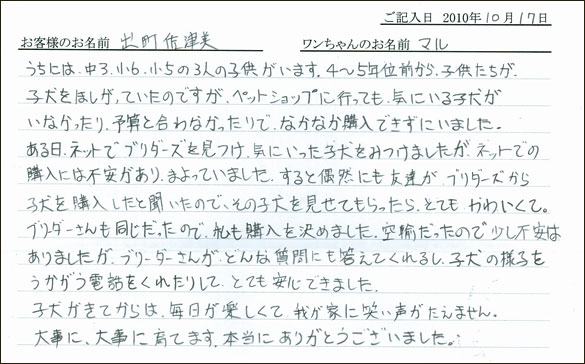 ご記入日 2010年10月17日
お客様のお名前 出町佐津美 ワンちゃんのお名前 マル
うちには、中3、小6、小5の3人の子供がいます。4〜5年位前から、子供たちが、
子犬をほしがっていたのですが、ペットショップに行っても、気にいる子犬が
いなかったり、予算と合わなかったりで、なかなか購入できずにいました。
ある日、ネットでブリダーズを見つけ、気にいった子犬をみつけましたが、ネットでの
購入には不安があり、まよっていました。すると偶然にも友達が、ブリダーズから
子犬を購入したと聞いたので、その子犬を見せてもらったら、とても かわいくて。
ブリーダーさんも同じだったので、私も購入を決めました。空輸だったので少し不安は
ありましたが、ブリーダーさんが、どんな質問にも答えてくれるし、子犬の様子を
うかがう電話をくれたりして、とても安心できました。
子犬がきてからは、毎日が楽しくて、我が家に笑い声がたえません。
大事に、大事に育てます。本当にありがとうございました。